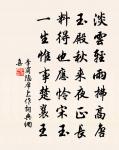 淡雲輕雨拂高唐
玉殿秋來夜正長
料得也應憐宋玉
一生惟事楚襄王
李商隱席上作詩詞典網